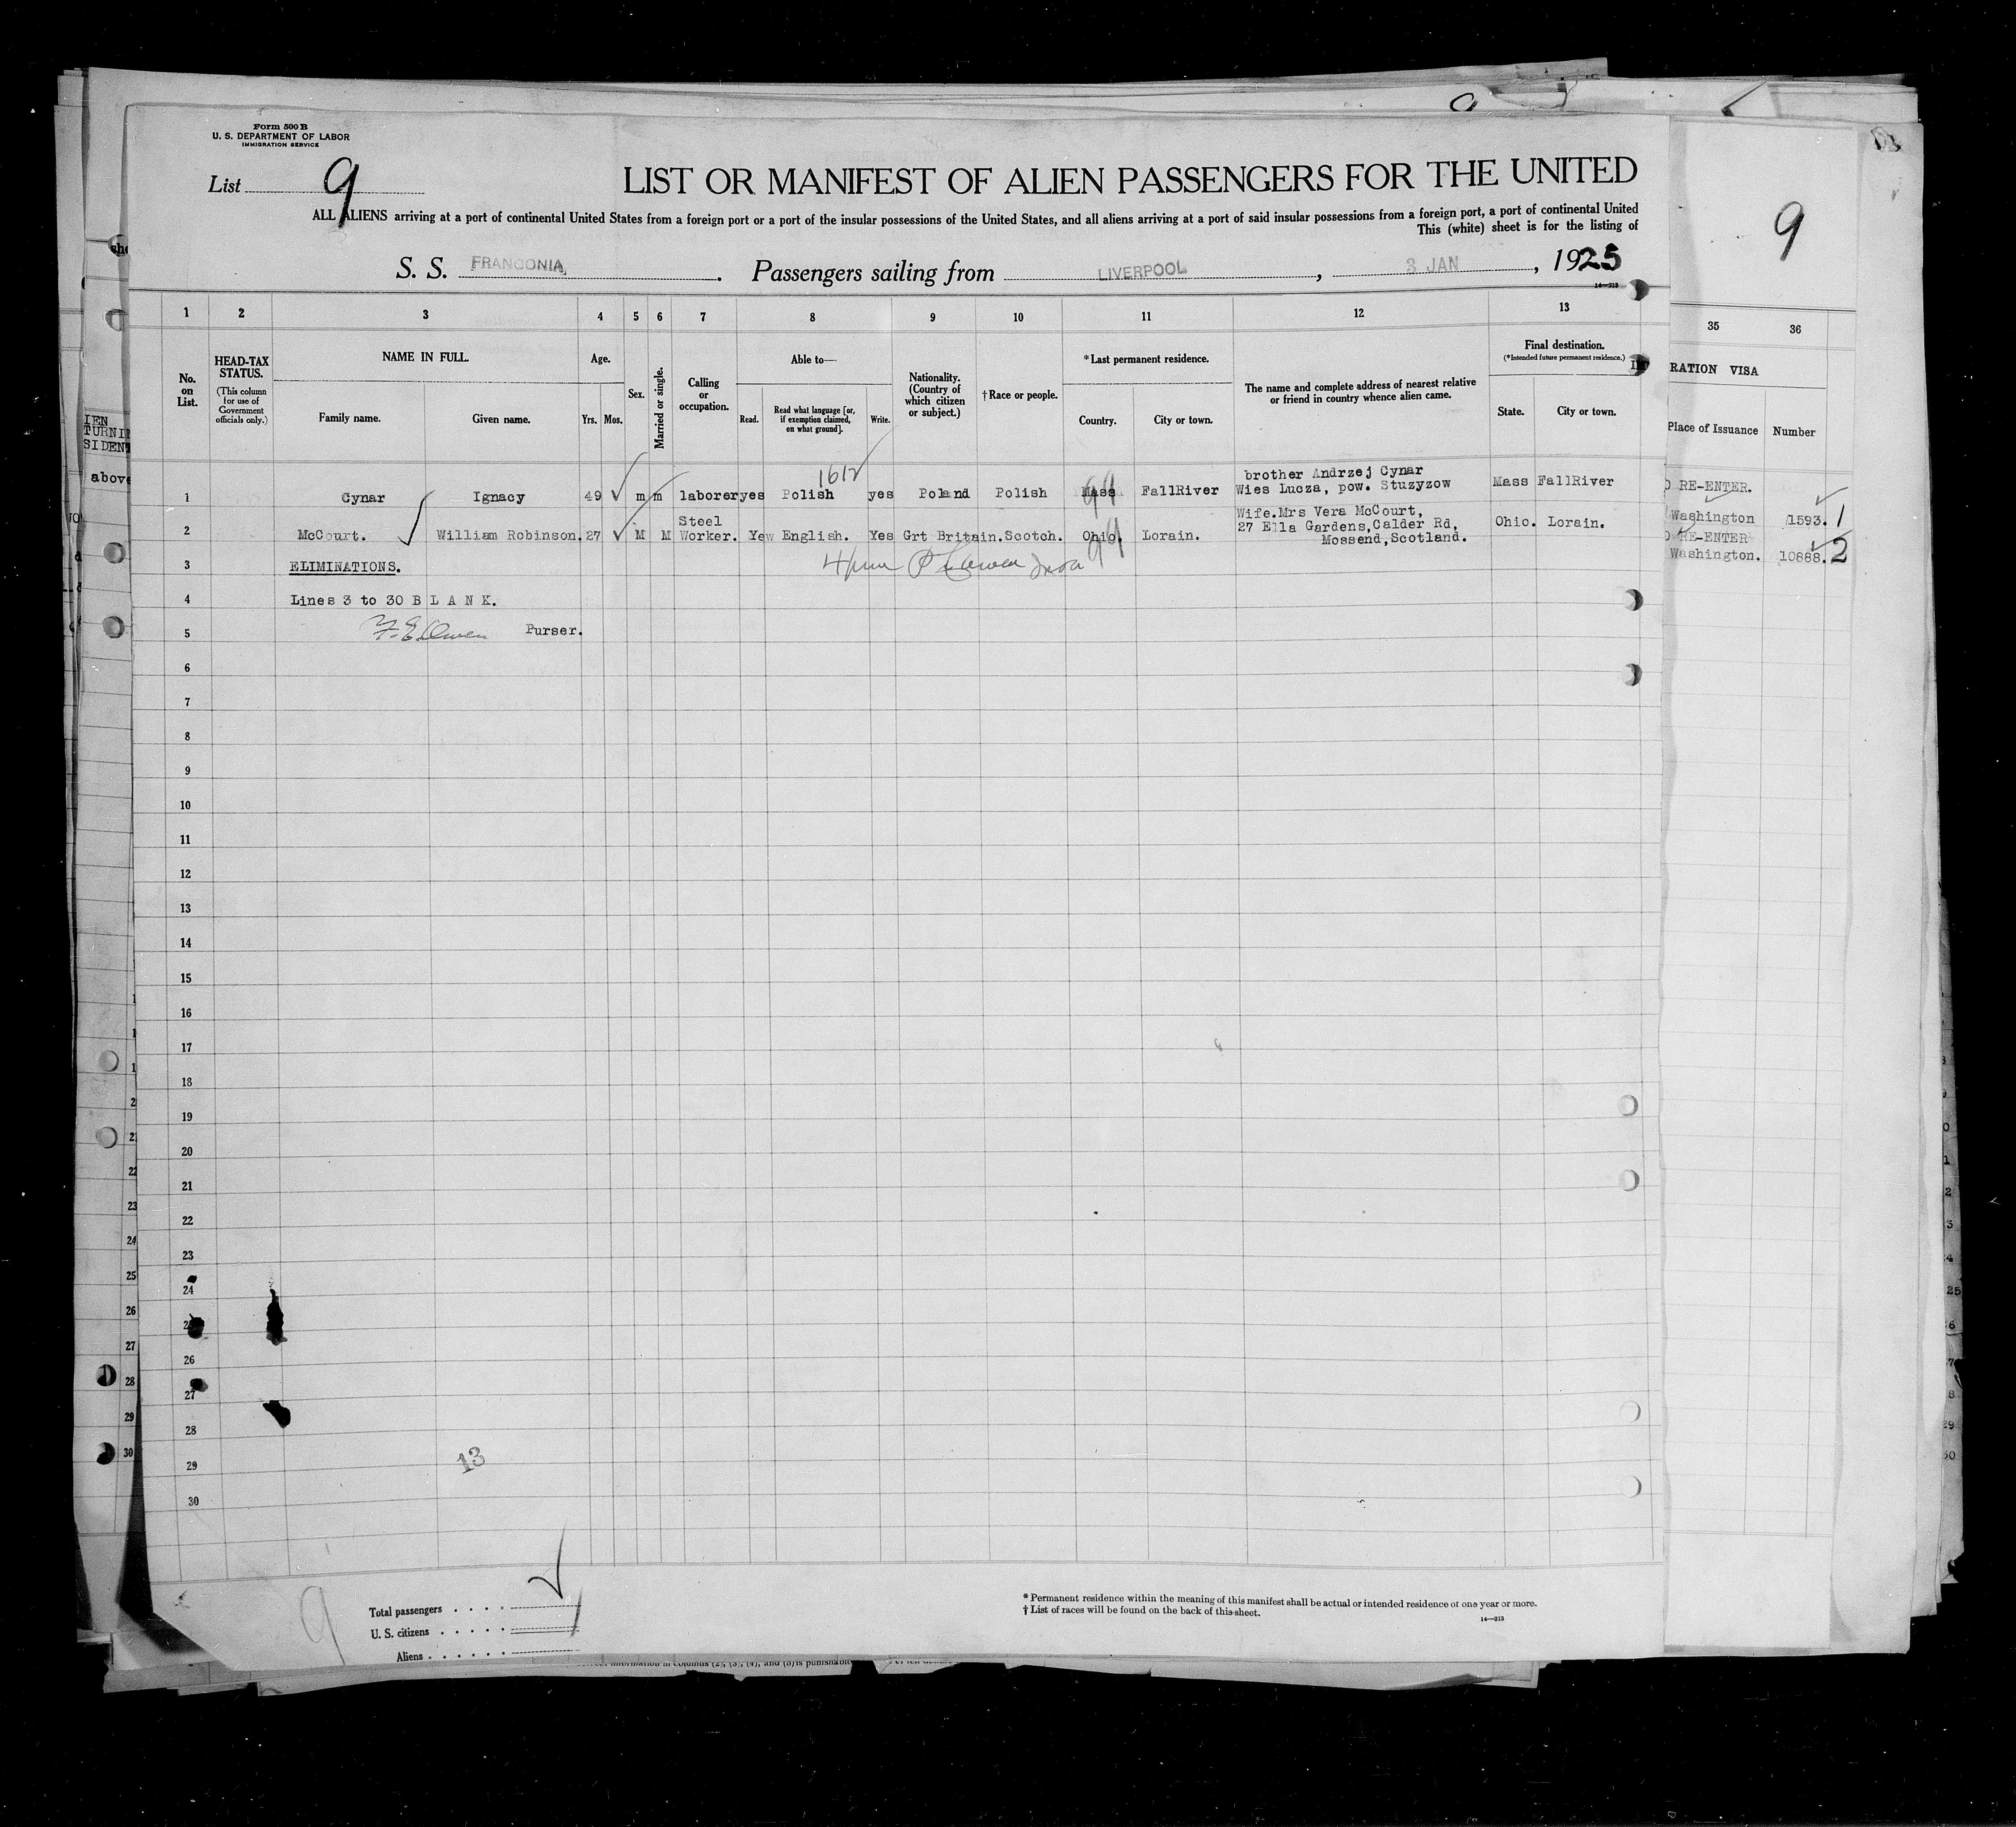 Form 500 B
U. S. DEPARTMENT OF LABOR
IMMIGRATION SERVICE
List 9
LIST OR MANIFEST OF ALIEN PASSENGERS FOR THE UNITED
ALL ALIENS arriving at a port of continental United States from a foreign port or a port of the insular possessions of the United States, and all aliens arriving at a port of said insular possessions from a foreign port, a port of continental United
This (white) sheet is for the listing of
9
S. S. FRANCONIA. Passengers sailing from LIVERPOOL, 3 JAN, 1925
14—313
1 2 3 4 5 6 7 8 9 10 11 12 13 35 36
No. on List.
HEAD-TAX STATUS.
(This column for use of Government officials only.)
NAME IN FULL.
Family name. Given name.
Age.
Yrs. Mos.
Sex.
Married or single.
Calling or occupation.
Able to—
Read. Read what language [or, if exemption claimed, on what ground]. Write.
Nationality. (Country of which citizen or subject.)
†Race or people.
*Last permanent residence.
Country. City or town.
The name and complete address of nearest relative or friend in country whence alien came.
Final destination.
(*Intended future permanent residence.)
State. City or town.
RATION VISA
Place of Issuance Number
1612
1 Cynar Ignacy 49 m m laborer yes Polish yes Poland Polish Mass FallRiver brother Andrzej Cynar
Wies Lucza, pow. Stuzyzow Mass FallRiver
RE-ENTER.
Washington 1593. 1
2 McCourt. William Robinson. 27 M M Steel Worker. Yew English. Yes Grt Britain. Scotch. Ohio. Lorain. Wife.Mrs Vera McCourt,
27 Ella Gardens,Calder Rd,
Mossend,Scotland. Ohio. Lorain.
RE-ENTER
Washington. 10888. 2
3 ELIMINATIONS.
4 Lines 3 to 30 B L A N K.
5 F. E. Owen Purser.
6
7
8
9
10
11
12
13
14
15
16
17
18
19
20
21
22
23
24
26
27
28
29
30
13
9
Total passengers
U. S. citizens
Aliens
* Permanent residence within the meaning of this manifest shall be actual or intended residence of one year or more.
† List of races will be found on the back of this sheet.
14—313